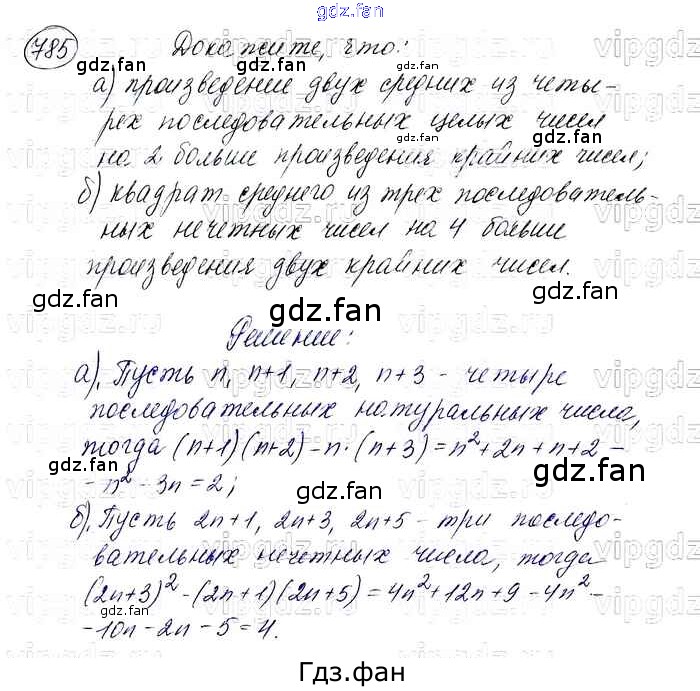 gdz.fan
785 Докажите, что:
а) произведение двух средних из четы-
рех последовательных целых чисел
на 2 больше произведения крайних чисел;
б) квадрат среднего из трех последователь-
ных нечетных чисел на 4 больше
произведения двух крайних чисел.
Решение:
а). Пусть n, n+1, n+2, n+3 - четыре
последовательных натуральных числа,
тогда (n+1)(n+2)-n·(n+3)=n²+2n+n+2-
-n²-3n=2;
б). Пусть 2n+1, 2n+3, 2n+5 - три последо-
вательных нечетных числа, тогда
(2n+3)²-(2n+1)(2n+5)=4n²+12n+9-4n²-
-10n-2n-5=4.
Гдз.фан